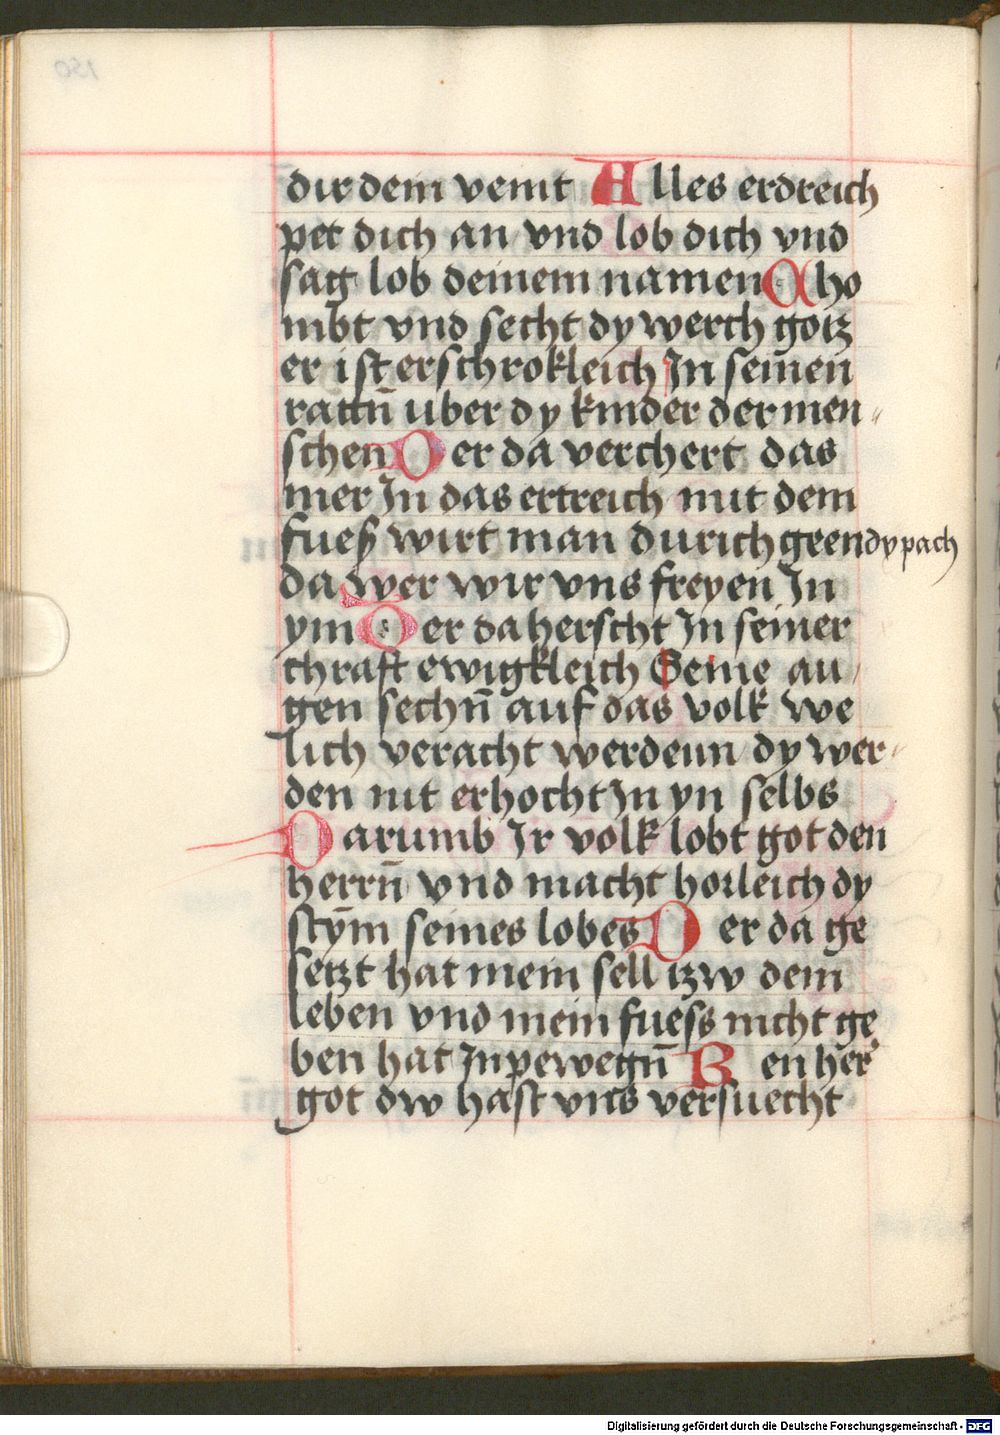 150
dir dem veint Alles erdreich
pet dich an vnd lob dich vnd
sag lob deinem namen Cho
mbt vnd secht dy werch gotz
er ist erschrokleich In seinen
rattn̄ uber dy kinder der men„
schen Der da verchert das
mer In das ertreich mit dem
fueß wirt man durich geen dy pach
da wer wir vns freyen In
ym Der da herscht In seiner
chraft ewigkleich Seine au/
gen sechn̄ auf das volk we
lich veracht werdenn dy wer„
den nit erhocht In yn selbs
Darumb Ir volk lobt got den
herrn̄ vnd macht horleich dy
stym̄ seines lobes Der da ge
setzt hat mein sell tzw dem
leben vnd mein fuess nicht ge
ben hat In pewegn̄ Ben her
got dw hast vns versuecht
Digitalisierung gefördert durch die Deutsche Forschungsgemeinschaft - DFG